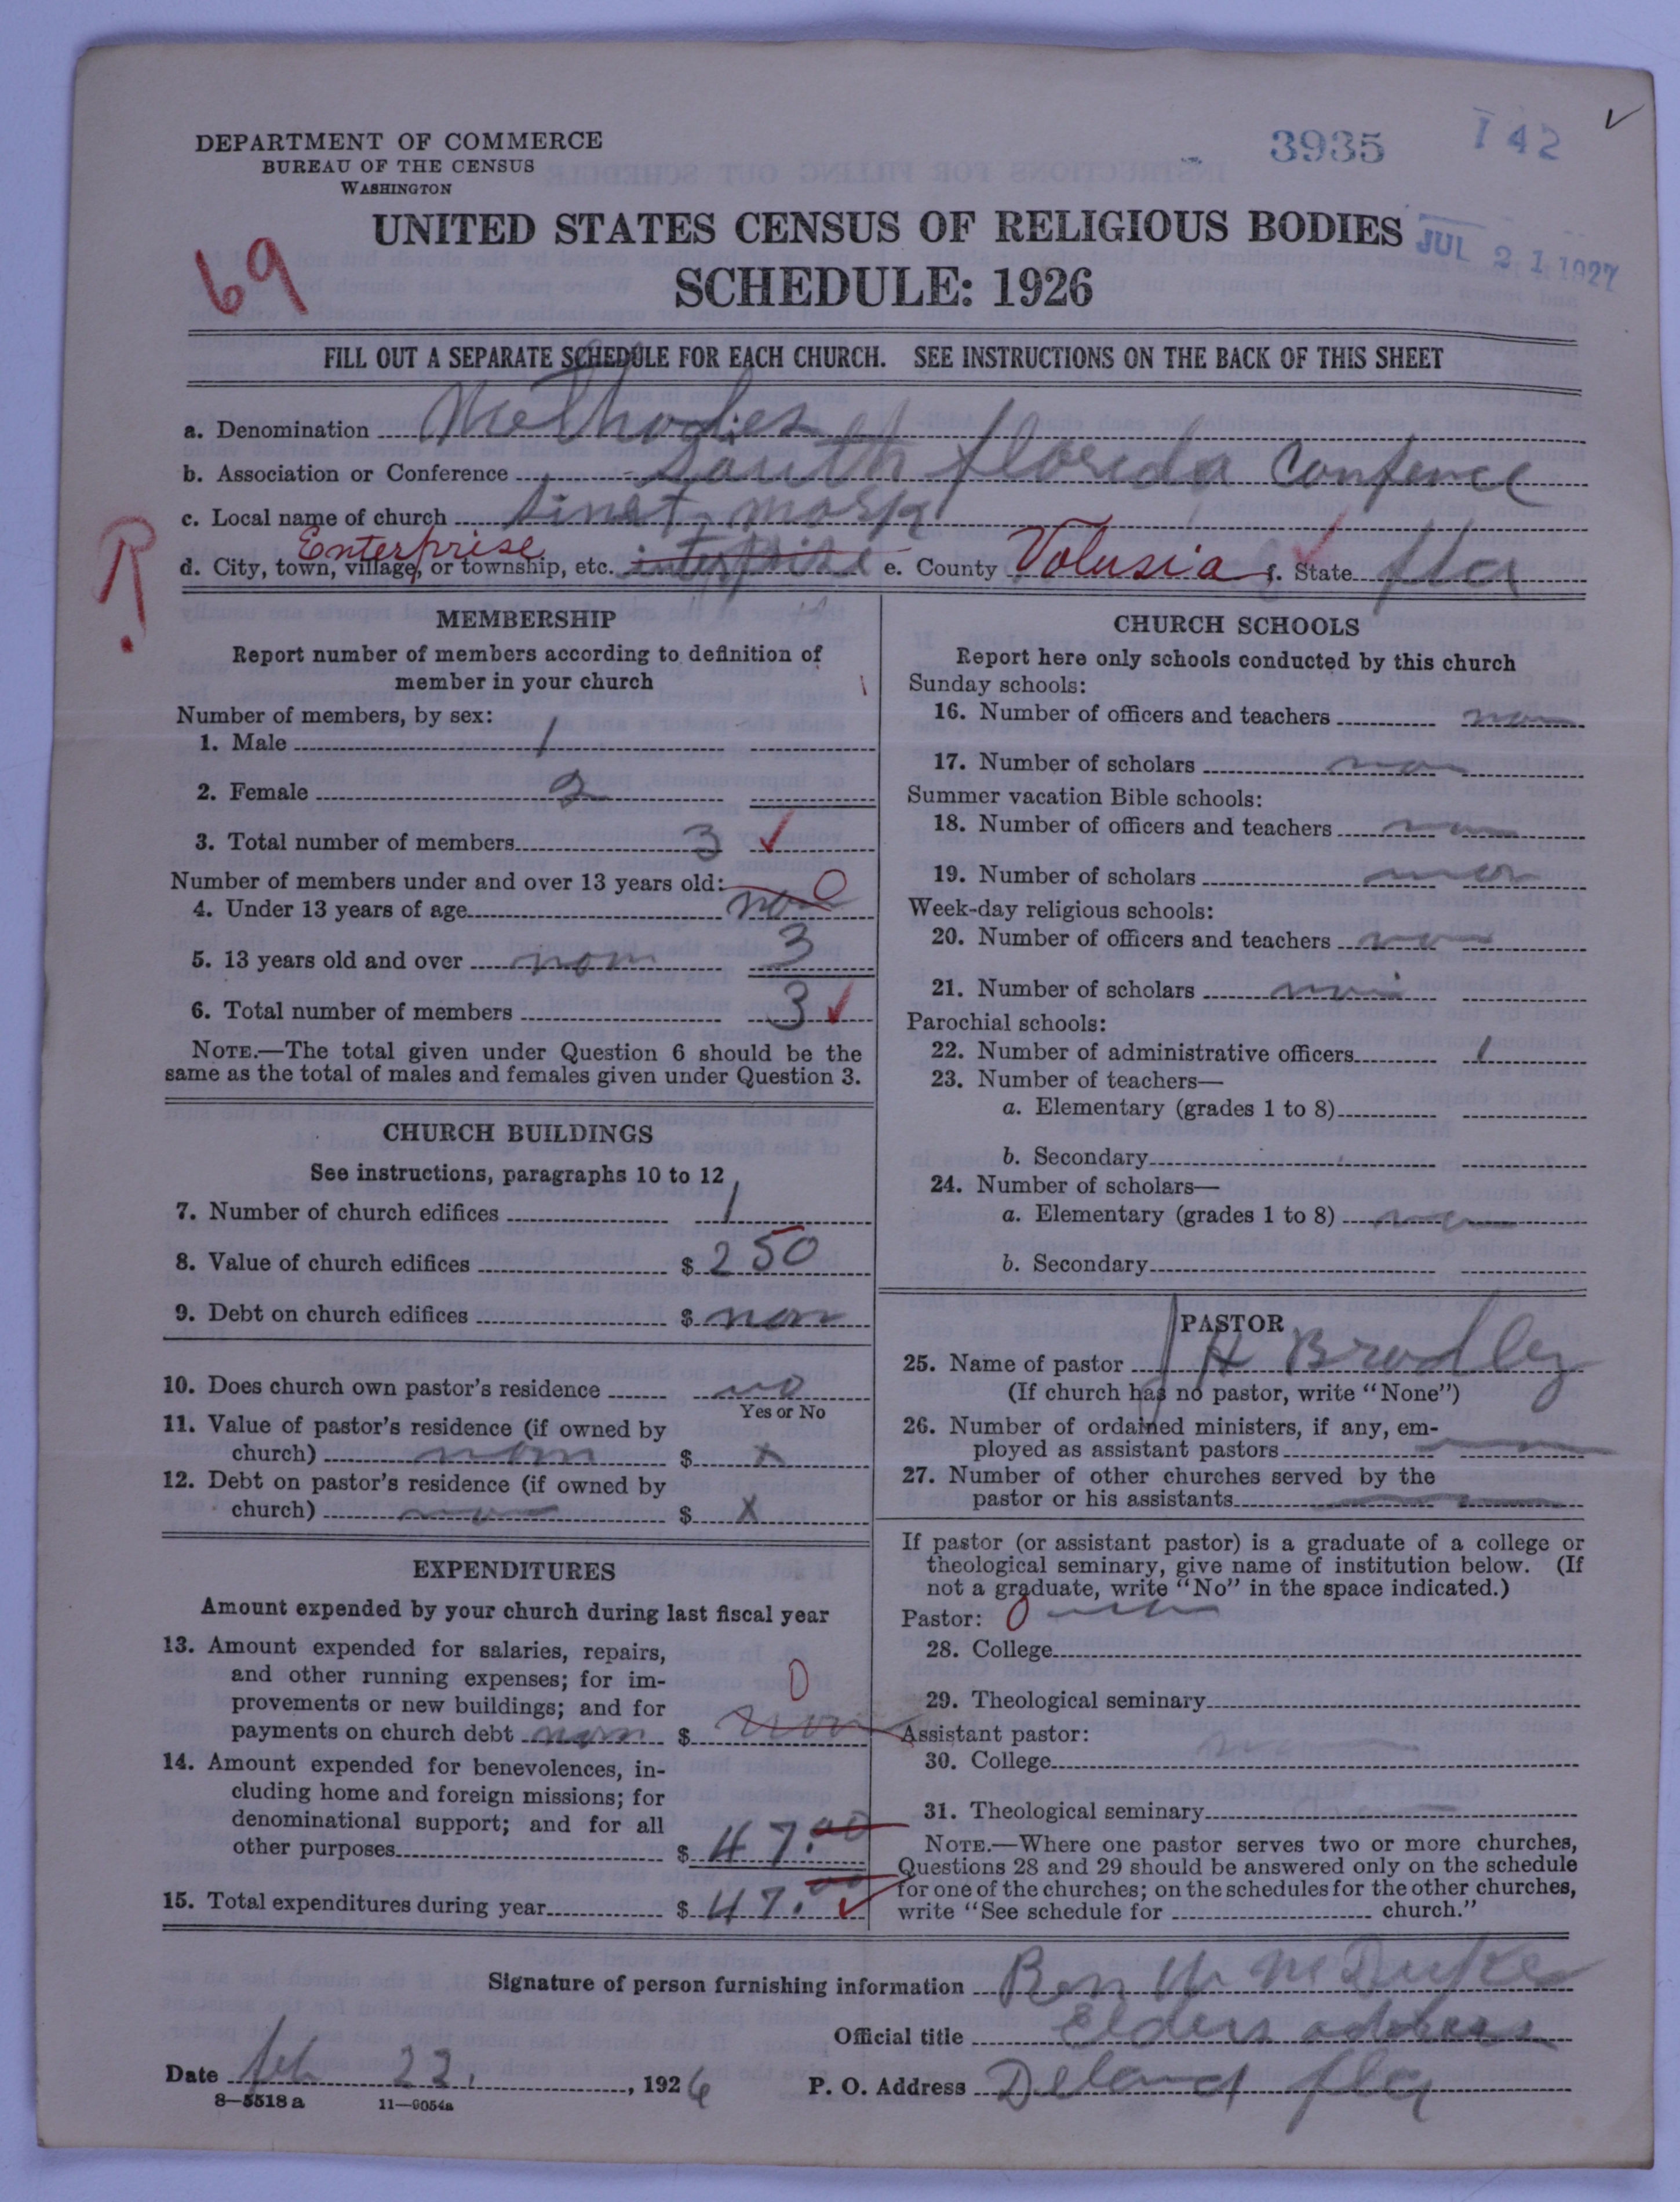 DEPARTMENT OF COMMERCE
BUREAU OF THE CENSUS
WASHINGTON
3935
142
✓
UNITED STATES CENSUS OF RELIGIOUS BODIES
SCHEDULE: 1926
JUL 21 1927
69
FILL OUT A SEPARATE SCHEDULE FOR EACH CHURCH. SEE INSTRUCTIONS ON THE BACK OF THIS SHEET
a. Denomination Methodies
b. Association or Conference South Florida Confence
c. Local name of church
Enterprise
d. City, town, village, or township, etc. interprise e. County Volusia f. State fla
R
MEMBERSHIP
Report number of members according to definition of
member in your church
Number of members, by sex:
1. Male 1
2. Female 2
3. Total number of members 3 ✓
Number of members under and over 13 years old: 0
4. Under 13 years of age non
5. 13 years old and over non 3
6. Total number of members 3 ✓
NOTE.—The total given under Question 6 should be the
same as the total of males and females given under Question 3.
CHURCH BUILDINGS
See instructions, paragraphs 10 to 12
7. Number of church edifices 1
8. Value of church edifices $ 250
9. Debt on church edifices $ non
10. Does church own pastor's residence no
Yes or No
11. Value of pastor's residence (if owned by
church) non $ x
12. Debt on pastor's residence (if owned by
church) non $ x
EXPENDITURES
Amount expended by your church during last fiscal year
13. Amount expended for salaries, repairs,
and other running expenses; for im-
provements or new buildings; and for 0
payments on church debt non $ non
14. Amount expended for benevolences, in-
cluding home and foreign missions; for
denominational support; and for all
other purposes $ 47.00
15. Total expenditures during year $ 47.00 ✓
CHURCH SCHOOLS
Report here only schools conducted by this church
Sunday schools:
16. Number of officers and teachers non
17. Number of scholars non
Summer vacation Bible schools:
18. Number of officers and teachers non
19. Number of scholars non
Week-day religious schools:
20. Number of officers and teachers non
21. Number of scholars non
Parochial schools:
22. Number of administrative officers 1
23. Number of teachers—
a. Elementary (grades 1 to 8)
b. Secondary
24. Number of scholars—
a. Elementary (grades 1 to 8) non
b. Secondary
PASTOR
25. Name of pastor J H Bradley
(If church has no pastor, write "None")
26. Number of ordained ministers, if any, em-
ployed as assistant pastors
27. Number of other churches served by the
pastor or his assistants
If pastor (or assistant pastor) is a graduate of a college or
theological seminary, give name of institution below. (If
not a graduate, write "No" in the space indicated.)
Pastor: 0
28. College
29. Theological seminary
Assistant pastor:
30. College
31. Theological seminary
NOTE.—Where one pastor serves two or more churches,
Questions 28 and 29 should be answered only on the schedule
for one of the churches; on the schedules for the other churches,
write "See schedule for church."
Signature of person furnishing information Ben W
Official title Elders address
Date feb 22, 1926 P. O. Address Deland fla
8—5518a 11—9054a